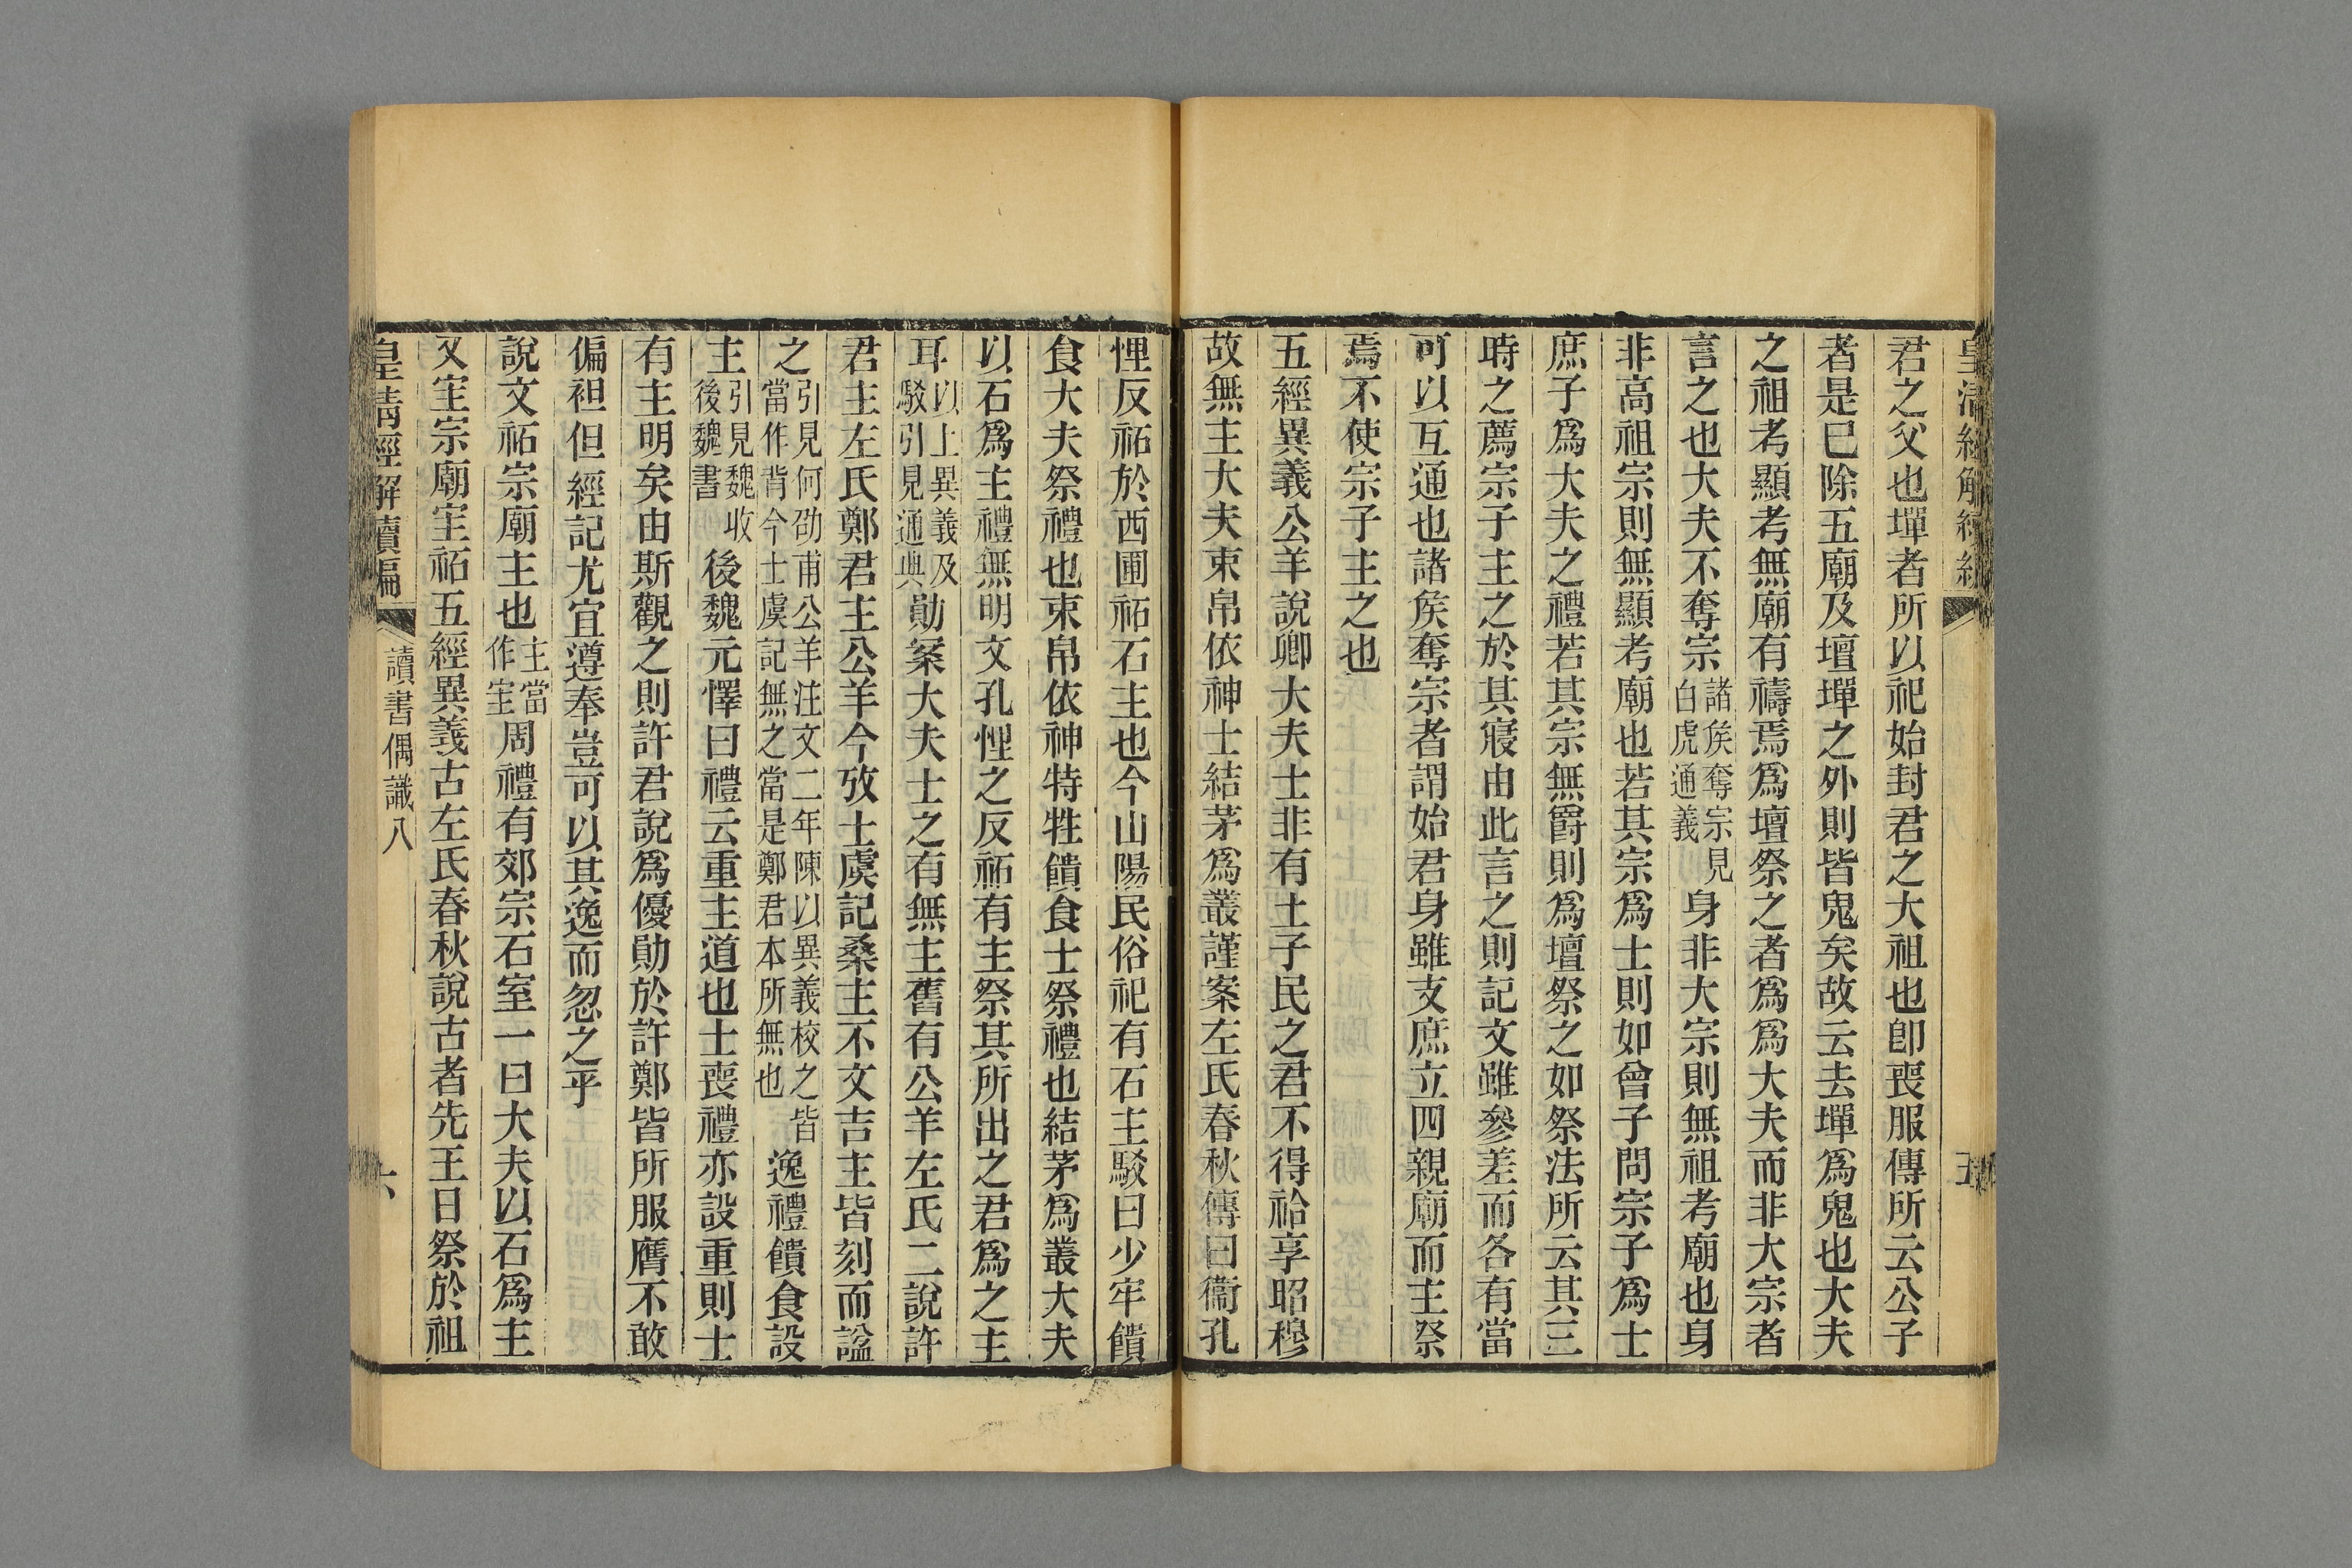 君之父也墠者所以祀始封君之大祖也卽喪服傳所云公子
者是巳除五廟及壇墠之外則皆鬼矣故云去墠爲鬼也大夫
之祖考顯考無廟有禱焉爲壇祭之者爲爲大夫而非大宗者
言之也大夫不奪宗諸矦奪宗見白虎通義身非大宗則無祖考廟也身
非高祖宗則無顯考廟也若其宗爲士則如曾子問宗子爲士
庶子爲大夫之禮若其宗無爵則爲壇祭之如祭法所云其三
時之薦宗子主之於其寢由此言之則記文雖參差而各有當
可以互通也諸矦奪宗者謂始君身雖支庶立四親廟而主祭
焉不使宗子主之也
五經異義公羊說卿大夫士非有土子民之君不得祫享昭穆
故無主大夫束帛依神士結茅爲叢謹案左氏春秋傳曰衞孔
悝反祏於西圃祏石主也今山陽民俗祀有石主駁曰少牢饋
食大夫祭禮也束帛依神特牲饋食士祭禮也結茅爲叢大夫
以石爲主禮無明文孔悝之反祏有主祭其所出之君爲之主
耳以上異義及駁引見通典勛案大夫士之有無主舊有公羊左氏二說許
君主左氏鄭君主公羊今攷士虞記桑主不文吉主皆刻而謚
之引見何劭甫公羊注文二年陳以異義校之皆當作背今士虞記無之當是鄭君本所無也逸禮饋食設
主引見魏收後魏書後魏元懌曰禮云重主道也士喪禮亦設重則士
有主明矣由斯觀之則許君說爲優勛於許鄭皆所服膺不敢
偏袒但經記尤宜遵奉豈可以其逸而忽之乎
說文祏宗廟主也主當作宔周禮有郊宗石室一曰大夫以石爲主
又宔宗廟宔祏五經異義古左氏春秋說古者先王日祭於祖
皇淸經解續編 讀書偶識八 六